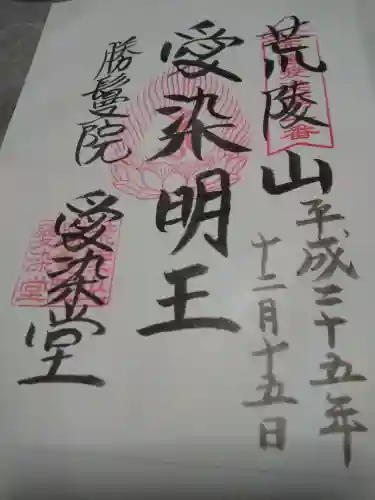 荒陵山
平成二十五年
十二月十五日
愛染明王
勝鬘院
愛染堂
愛染堂